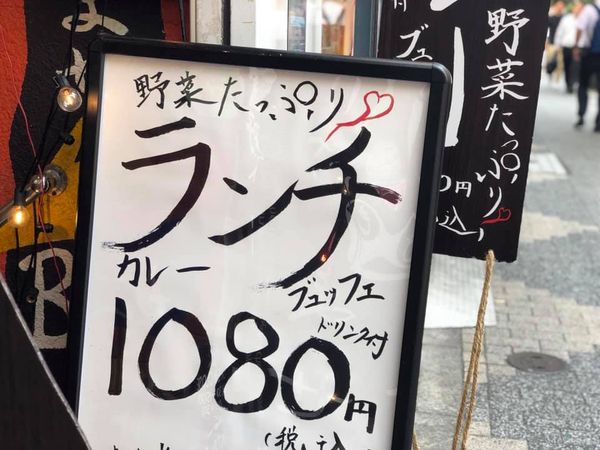 野菜たっぷり
ランチ
カレー
ブュッフェ
ドリンク付
1080円
(税込
野菜たっぷり
ブュ
0円
込)
B